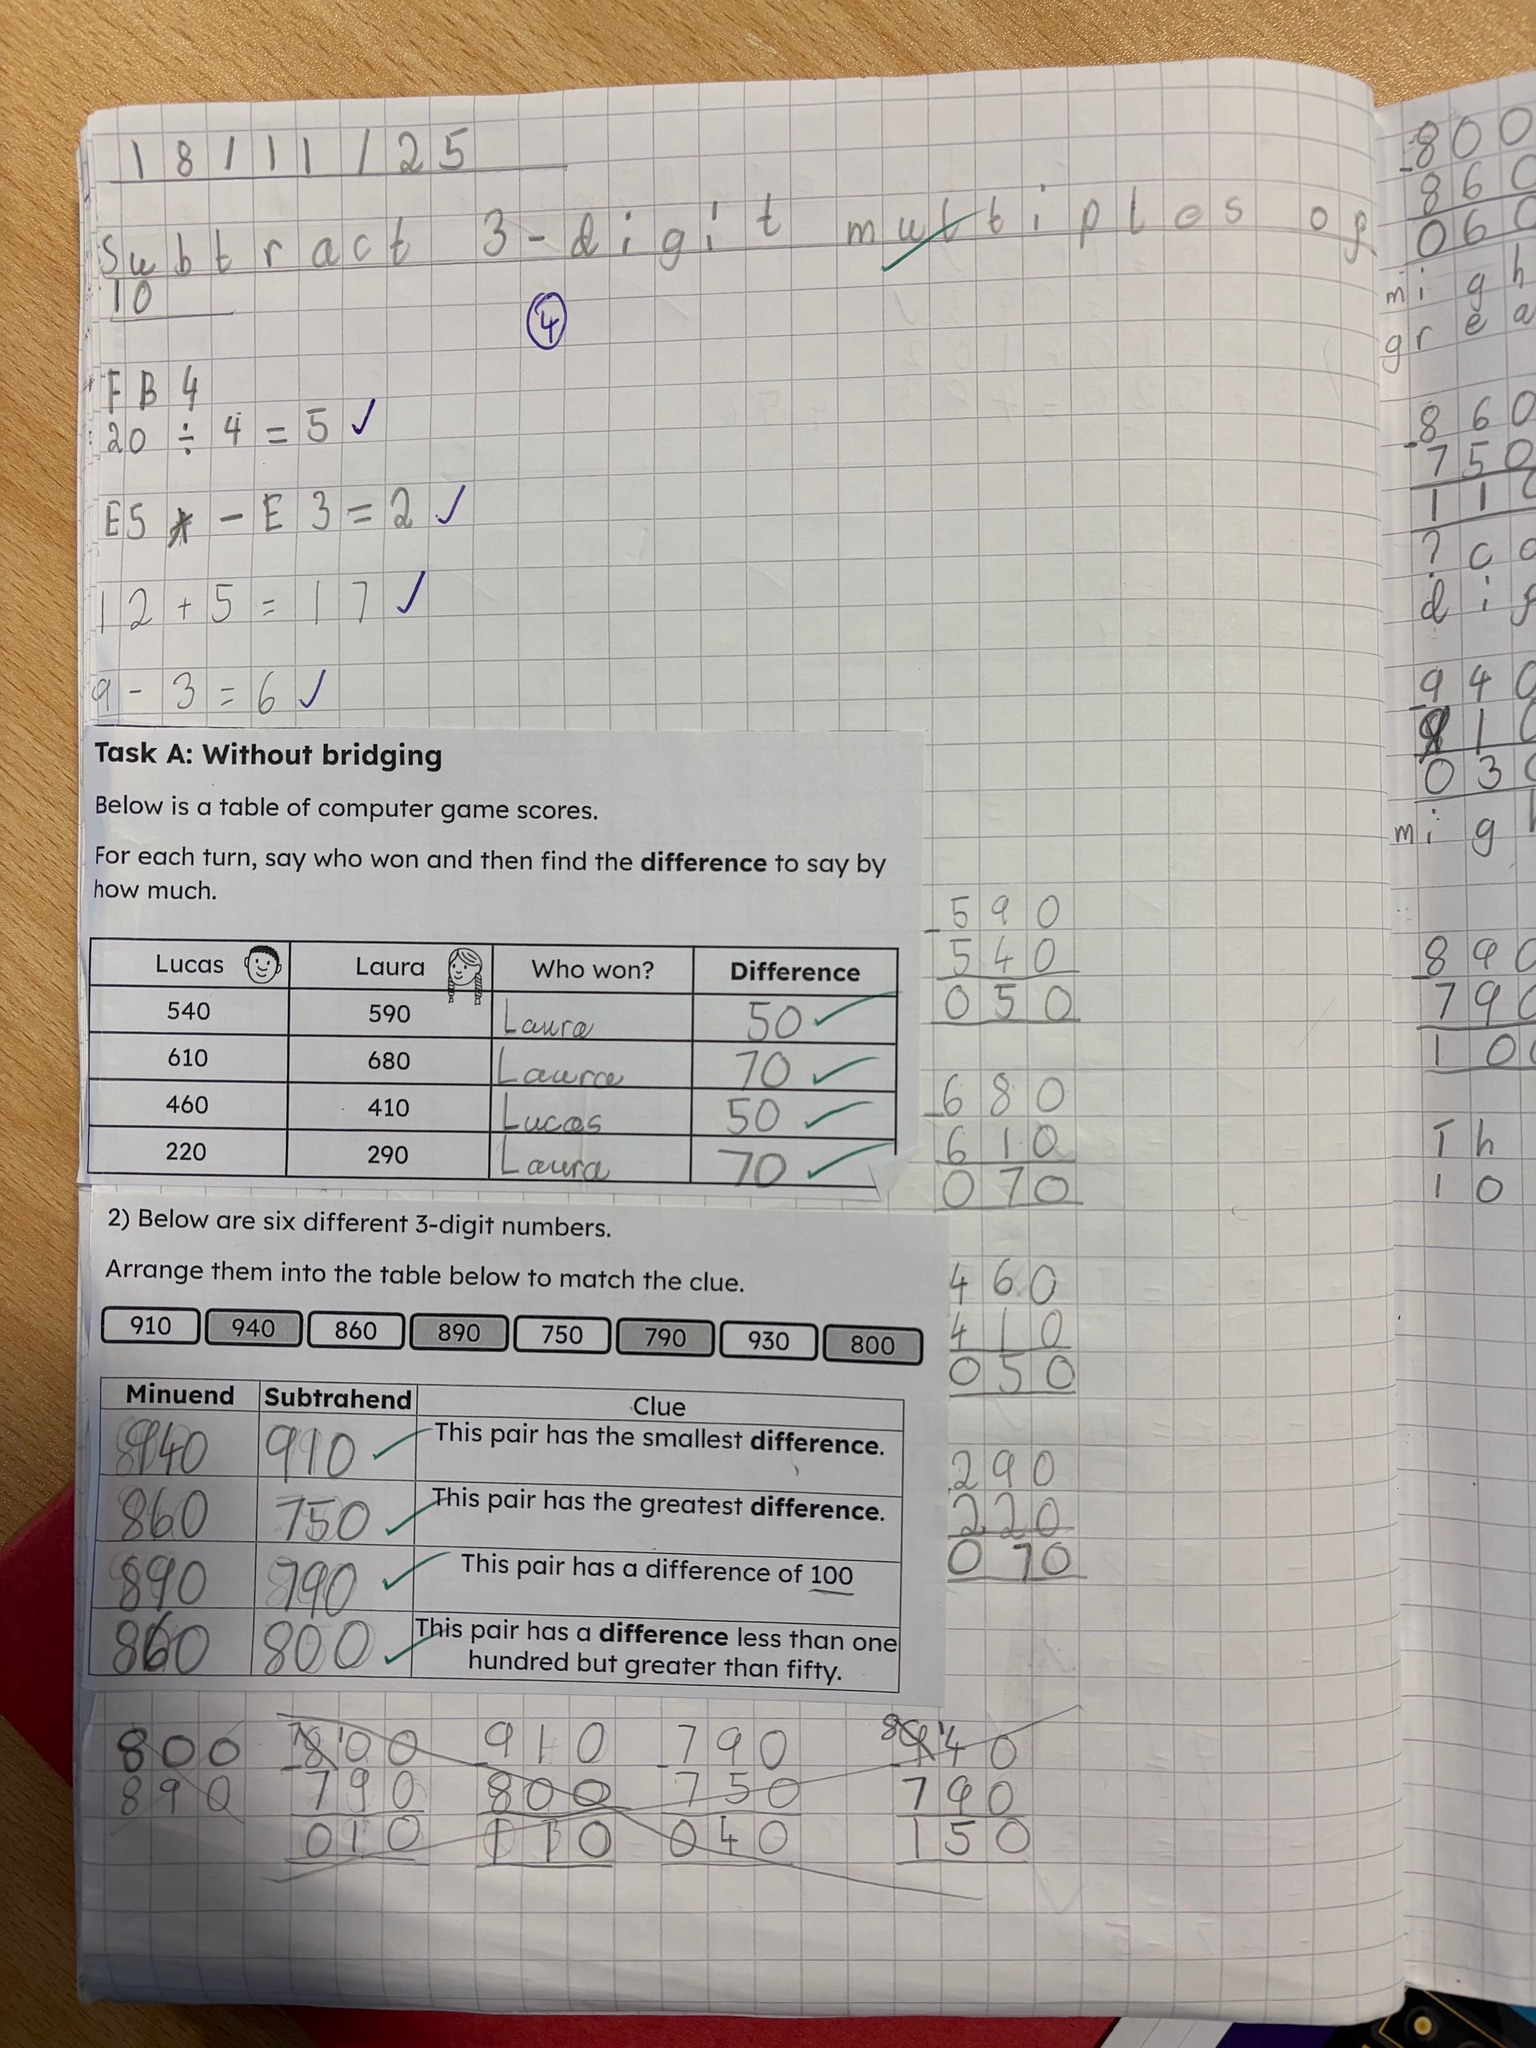 18/11/25
Subtract 3-digit multiples of
10
4
FB4
20 ÷ 4 = 5
E5 - E3 = 2
12 + 5 = 17
9 - 3 = 6
Task A: Without bridging
Below is a table of computer game scores.
For each turn, say who won and then find the difference to say by
how much.
Lucas Laura Who won? Difference
540 590 Laura 50
610 680 Laura 70
460 410 Lucas 50
220 290 Laura 70
-590
540
050
-680
610
070
460
410
050
290
220
070
2) Below are six different 3-digit numbers.
Arrange them into the table below to match the clue.
910 940 860 890 750 790 930 800
Minuend Subtrahend Clue
940 910 This pair has the smallest difference.
860 750 This pair has the greatest difference.
890 790 This pair has a difference of 100
860 800 This pair has a difference less than one
hundred but greater than fifty.
800
890
-800
790
010
-910
800
110
-790
750
040
-940
790
150
-800
860
060
migh
grea
-860
750
11
? co
dif
-940
810
030
migh
-890
790
100
Th
10